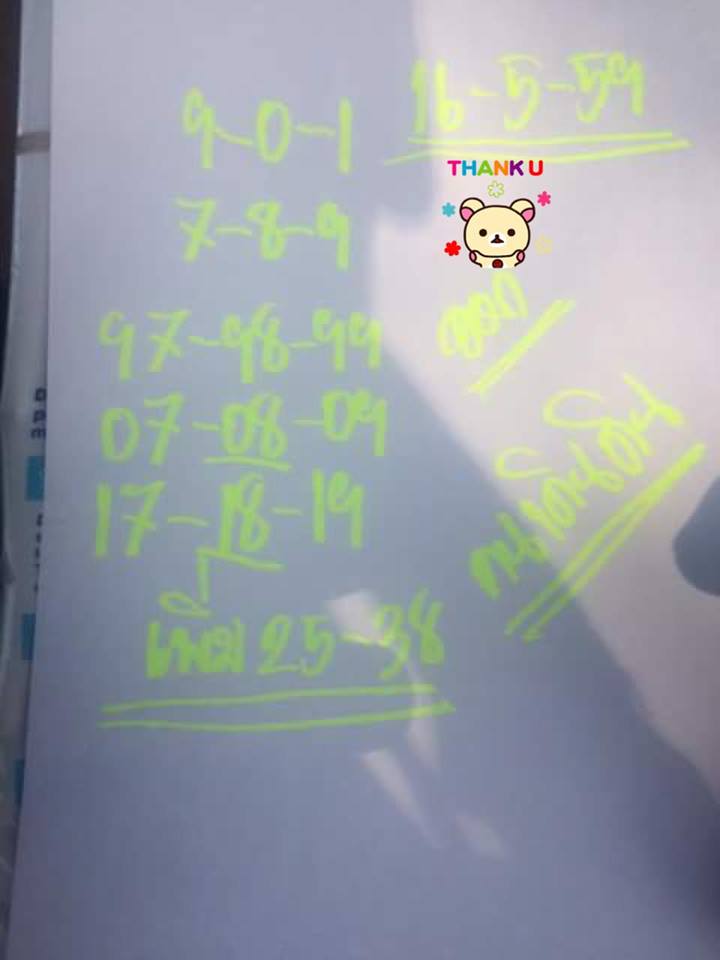 16-5-59
9-0-1
THANK U
7-8-9
97-98-99
07-08-09
17-18-19
เพิ่ม 25-38